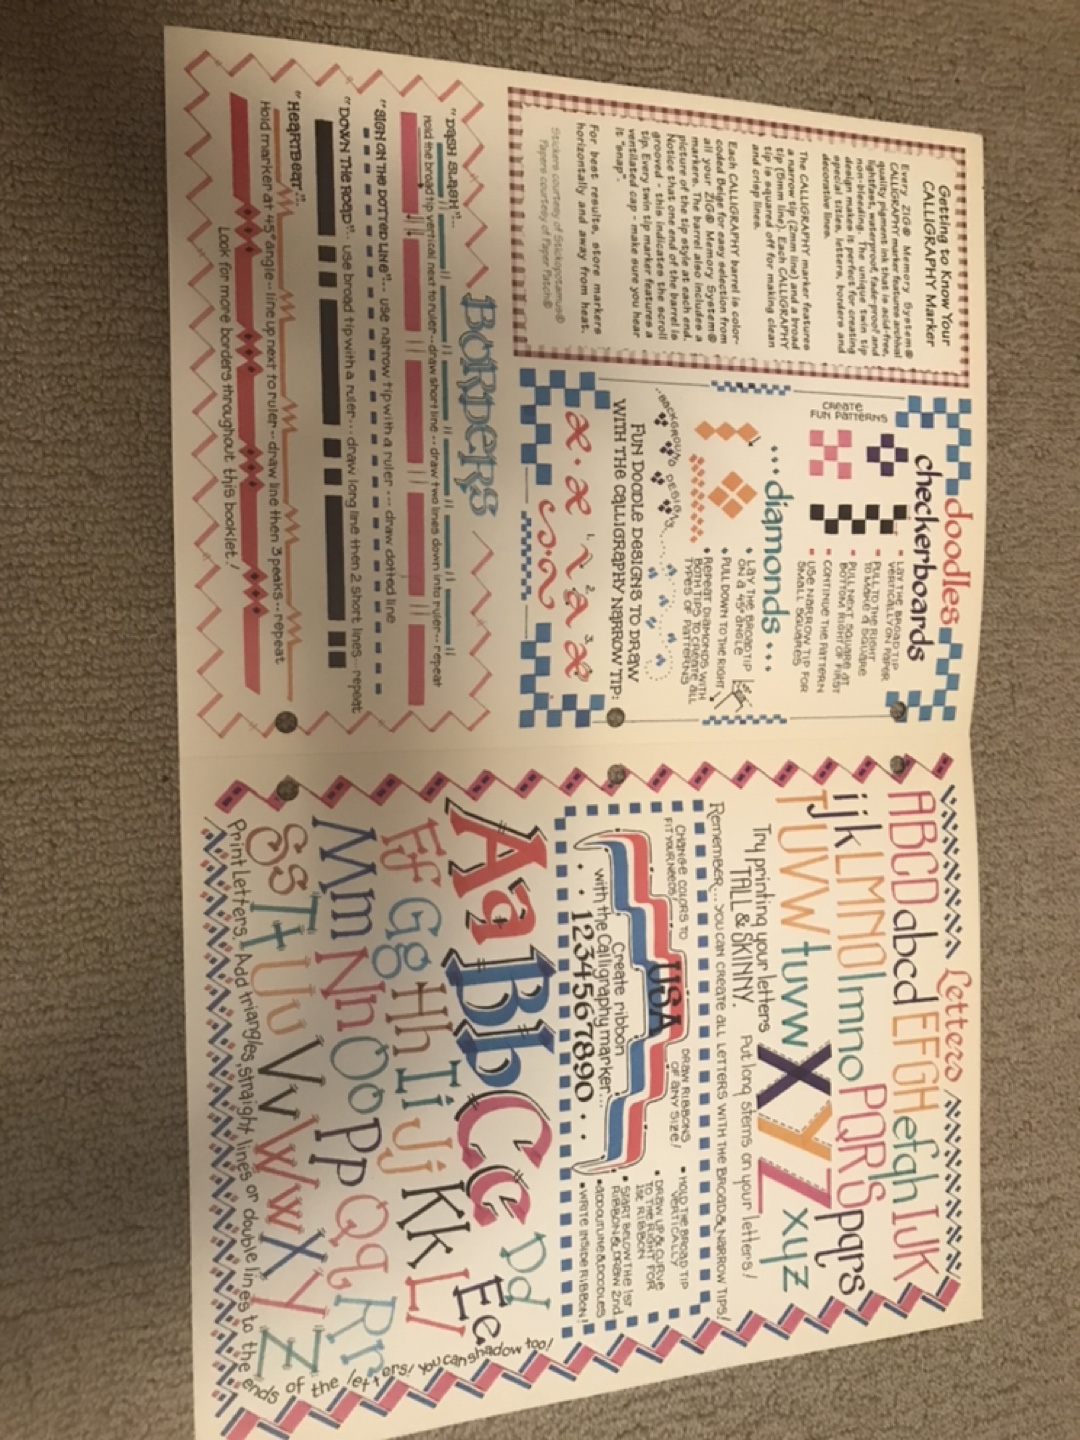 Getting to Know Your
CALLIGRAPHY Marker
Every ZIG® Memory System®
CALLIGRAPHY marker features archival
quality pigment ink that is acid-free,
lightfast, waterproof, fade-proof and
non-bleeding. The unique twin tip
design makes it perfect for creating
special titles, letters, borders and
decorative lines.
The CALLIGRAPHY marker features
a narrow tip (2mm line) and a broad
tip (5mm line). Each CALLIGRAPHY
tip is squared off for making clean
and crisp lines.
Each CALLIGRAPHY barrel is color-
coded Beige for easy selection from
all your ZIG® Memory System®
markers. The barrel also includes a
picture of the tip style at each end.
Notice that one end of the barrel is
grooved - this indicates the scroll
tip. Every twin tip marker features a
ventilated cap - make sure you hear
it "snap".
For best results, store markers
horizontally and away from heat.
Stickers courtesy of Stickopotamus®
Papers courtesy of Paper Patch®
doodles
checkerboards
CREATE
FUN PATTERNS
• LAY THE BROAD TIP
VERTICALLY ON PAPER
• PULL TO THE RIGHT
TO MAKE A SQUARE
• PULL NEXT SQUARE AT
BOTTOM RIGHT OF FIRST
• CONTINUE THE PATTERN
• USE NARROW TIP FOR
SMALL SQUARES
...diamonds...
• LAY THE BROAD TIP
ON A 45° ANGLE
• PULL DOWN TO THE RIGHT
• REPEAT DIAMONDS WITH
BOTH TIPS TO CREATE ALL
TYPES OF PATTERNS
BACKGROUND DESIGNS
FUN DOODLE DESIGNS TO DRAW
WITH THE CALLIGRAPHY NARROW TIP:
1. 2. 3.
BORDERS
"DASH SLASH"...
Hold the broad tip vertical next to ruler -- draw short line -- draw two lines down into ruler -- repeat
"SIGN ON THE DOTTED LINE"... use narrow tip with a ruler ... draw dotted line
"DOWN THE ROAD"... use broad tip with a ruler ... draw long line then 2 short lines ... repeat
"HEARTBEAT"...
Hold marker at 45° angle -- line up next to ruler -- draw line then 3 peaks -- repeat
Look for more borders throughout this booklet!
Letters
ABCD abcd EFGH efgh IJK
ijk LMNO lmno PQRS pqrs
TUVW tuvw XYZ xyz
Try printing your letters
TALL & SKINNY.
Put long stems on your letters!
Remember... YOU CAN CREATE ALL LETTERS WITH THE BROAD & NARROW TIPS!
CHANGE COLORS TO
FIT YOUR NEEDS
USA
DRAW RIBBONS
OF ANY SIZE!
Create ribbon
with the Calligraphy marker...
• • 1234567890 • •
• HOLD THE BROAD TIP
VERTICALLY
• DRAW UP & CURVE
TO THE RIGHT FOR
1st RIBBON
• START BELOW THE 1st
RIBBON & DRAW 2nd
• ADD OUTLINE & DOODLES
• WRITE INSIDE RIBBON!
Aa Bb Cc Dd Ee
Ff Gg Hh Ii Jj Kk Ll
Mm Nn Oo Pp Qq Rr
Ss Tt Uu Vv Ww Xx Yy Zz
Print Letters. Add triangles, straight lines or double lines to the ends of the letters! You can shadow too!